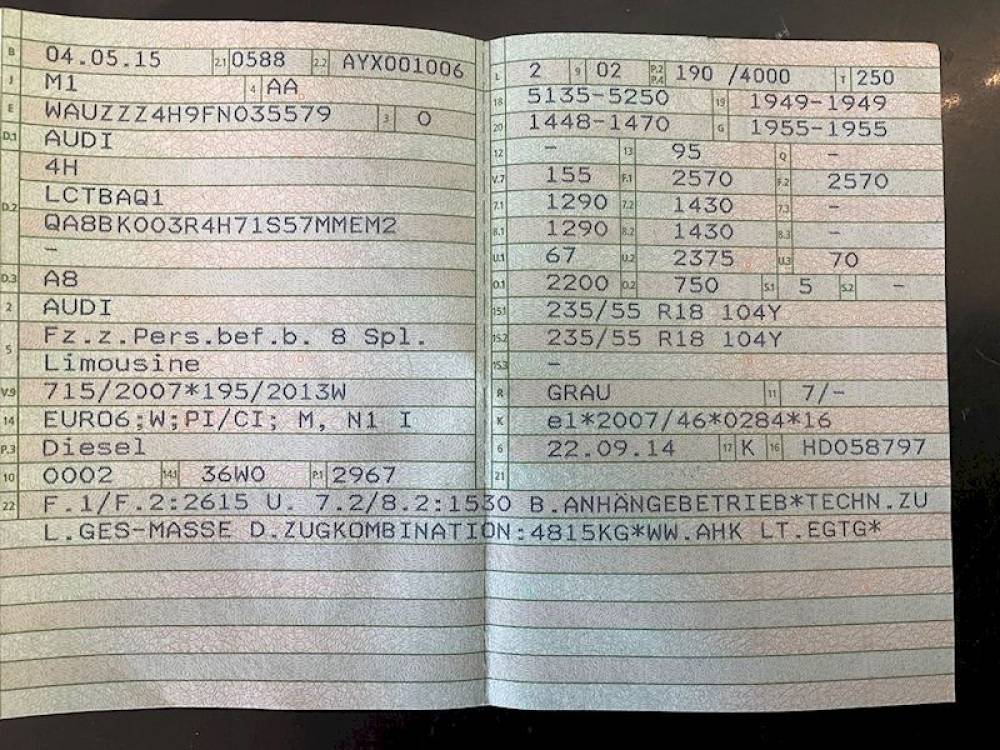 B 04.05.15 2.1 0588 2.2 AYX001006
J M1 4 AA
E WAUZZZ4H9FN035579 3 0
D.1 AUDI
4H
D.2 LCTBAQ1
QA8BK003R4H71S57MMEM2
–
D.3 A8
2 AUDI
5 Fz.z.Pers.bef.b. 8 Spl.
Limousine
V.9 715/2007*195/2013W
14 EURO6;W;PI/CI; M, N1 I
P.3 Diesel
10 0002 14.1 36W0 P.1 2967
L 2 9 02 P.2 P.4 190 /4000 T 250
18 5135-5250 19 1949-1949
20 1448-1470 G 1955-1955
12 – 13 95 Q –
V.7 155 F.1 2570 F.2 2570
7.1 1290 7.2 1430 7.3 –
8.1 1290 8.2 1430 8.3 –
U.1 67 U.2 2375 U.3 70
O.1 2200 O.2 750 S.1 5 S.2 –
15.1 235/55 R18 104Y
15.2 235/55 R18 104Y
15.3 –
R GRAU 11 7/–
K e1*2007/46*0284*16
6 22.09.14 17 K 16 HD058797
21
22 F.1/F.2:2615 U. 7.2/8.2:1530 B.ANHÄNGEBETRIEB*TECHN.ZU
L.GES-MASSE D.ZUGKOMBINATION:4815KG*WW.AHK LT.EGTG*